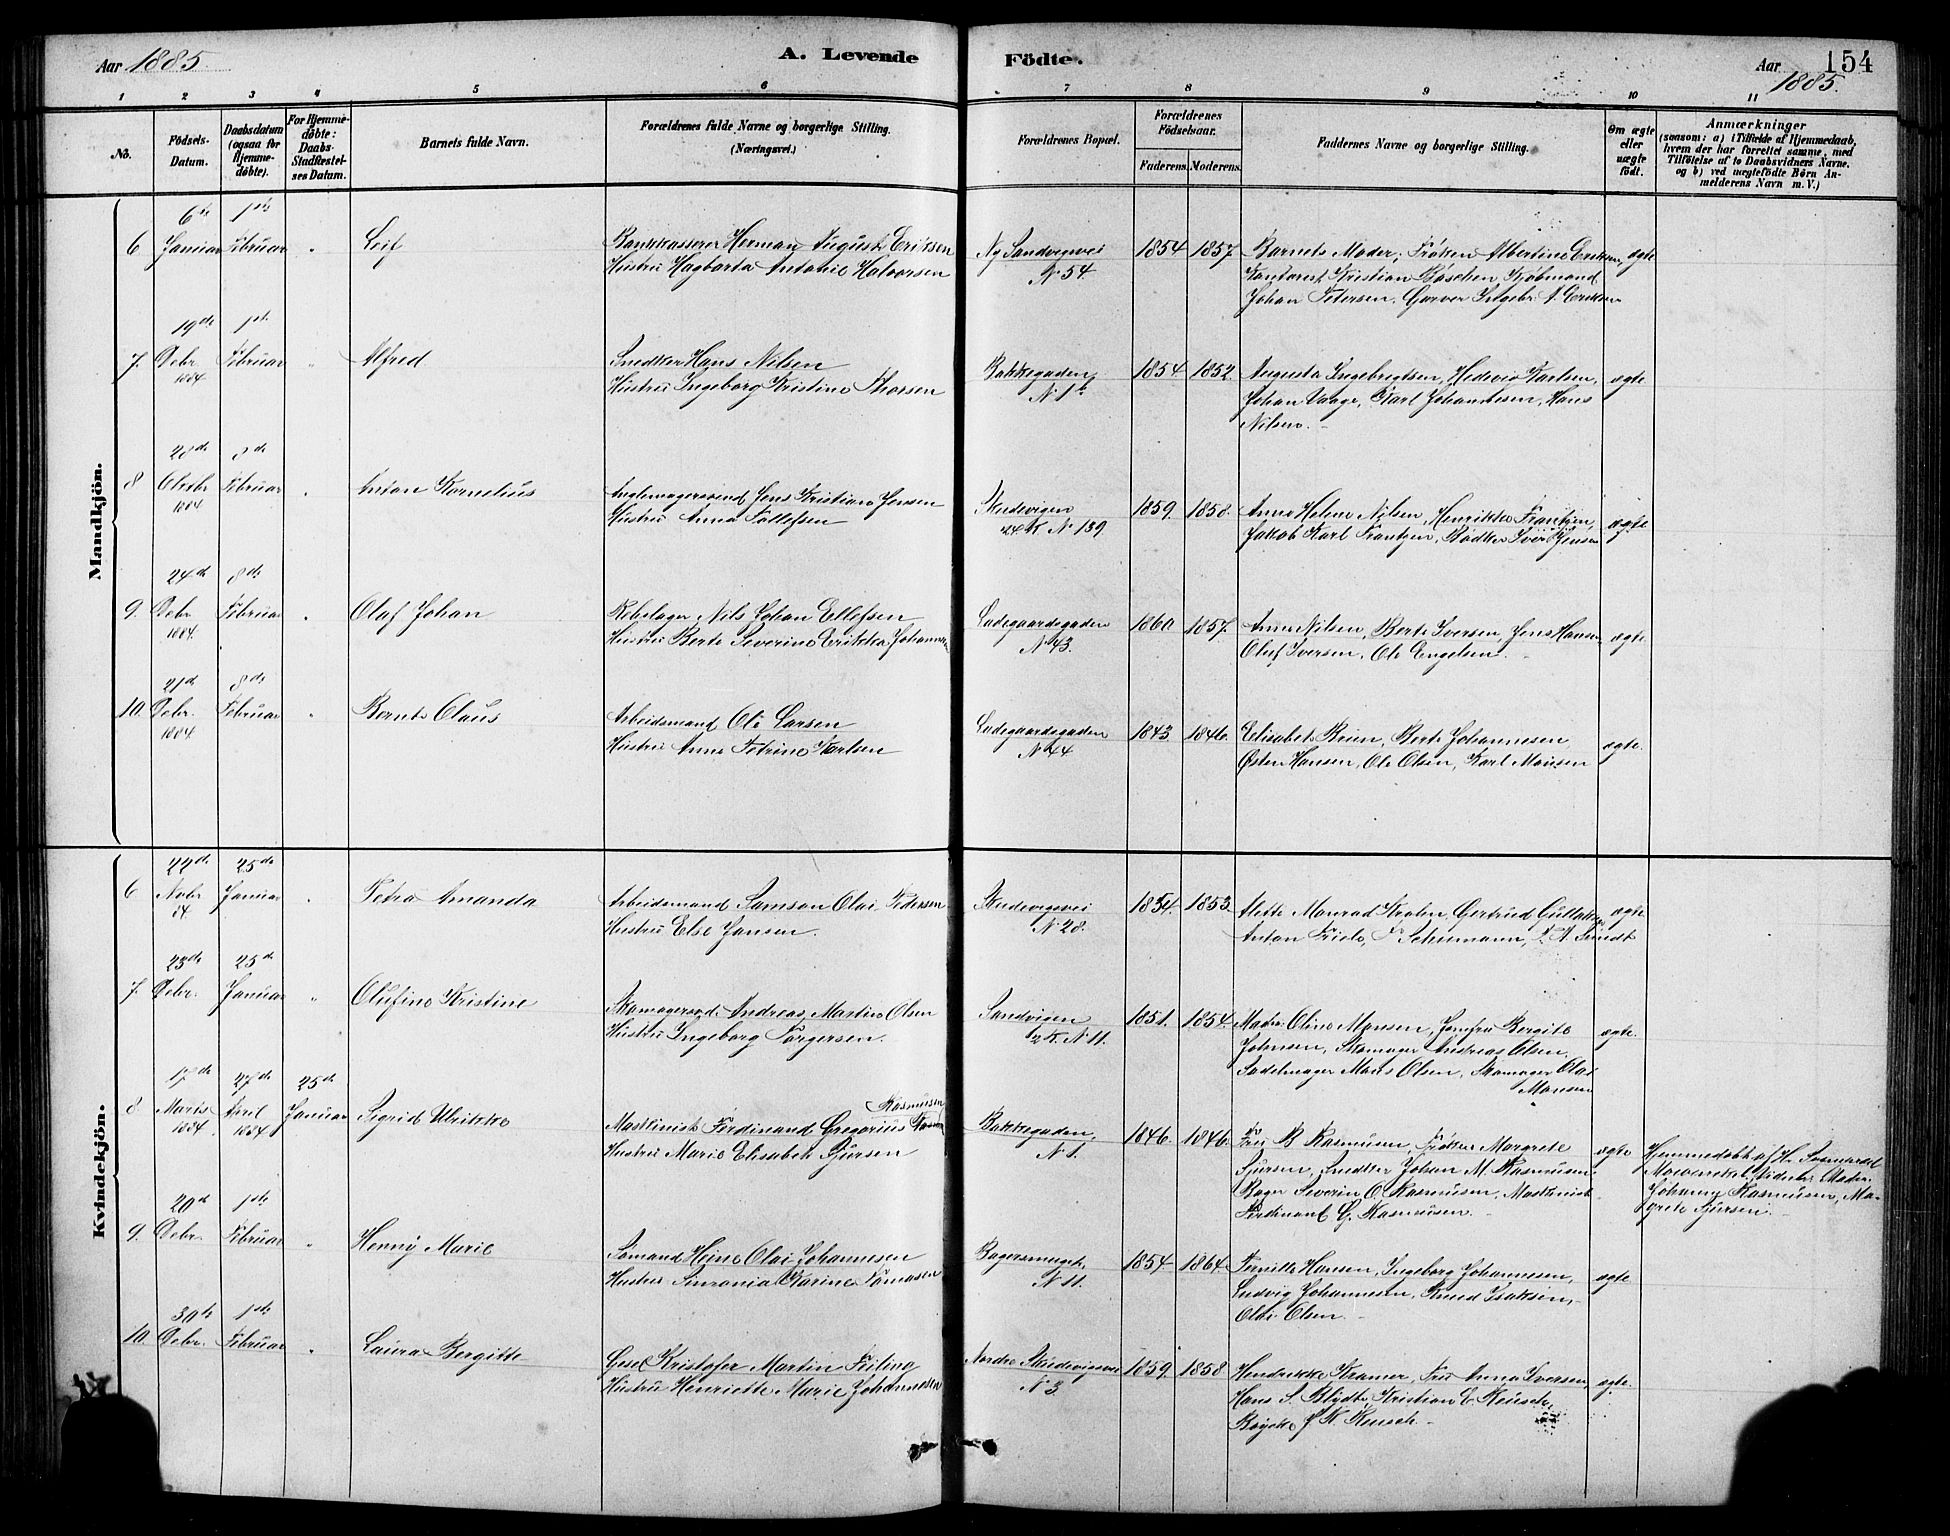 Aar 1885
A. Levende
Födte.
Aar 1885.
154
1 2 3 4 5 6 7 8 9 10 11
No.
Födsels-Datum.
Daabsdatum (ogsaa for Hjemmedöbte).
For Hjemmedöbte: Daabs-Stadfæstelses Datum.
Barnets fulde Navn.
Forældrenes fulde Navne og borgerlige Stilling.
(Næringsvei.)
Forældrenes Bopæl.
Forældrenes Födselsaar.
Faderens. Moderens.
Faddernes Navne og borgerlige Stilling.
Om ægte eller uægte födt.
Anmærkninger
(saasom: a) i Tilfælde af Hjemmedaab, hvem der har forrettet samme, med Tilföielse af to Daabsvidners Navne, og b) ved uægtefödte Börn Anmelderens Navn m. V.)
Mandkjön.
6 6te Januar 1ste Februar " Leif
Bankkasserer Herman August Eriksen
Hustru Hagbarta Antonie Halvorsen
Ny Sandvigsvei
N 54
1854 1857.
Barnets Moder, Frøken Albertine Eriksen,
Kristian Bøschen Kjøbmand
Johan Petersen, Garver Ingebr. A. Eriksen
ægte
7. 19de Debr. 1884 1st. Februar " Alfred
Snedker Hans Nilsen
Hustru Ingeborg Kristine Thorsen
Bakkegaden
N 1b
1854 1852.
Augusta Ingebrigtsen, Hedevig Karlsen,
Johan Vaage, Karl Johannesen, Hans
Nilsen.
ægte
8 28de Oktbr 1884 8de Februar " Anton Kornelius
Jens Kristian Jensen
Hustru Anna Tollefsen
Skudevigen
24 R. N 139
1859. 1858.
Anna Helene Nilsen, Henrikke Frantzen,
Jakob Karl Frantzen, Bødker Iver Jensen
ægte
9. 24de Debr. 1884. 8de Februar " Olaf Johan
Rebslager Nils Johan Ellefsen
Hustru Berte Severine Erikka Johannesen
Ladegaardsgaden
N 43.
1860. 1857.
Anna Nilsen, Berte Iversen, Jens Hansen
Oluf Iversen, Ole Engelsen.
ægte
10. 21de Debr. 1884. 8de Februar " Bernt Olaus
Arbeidsmand Ole Larsen
Hustru Anne Petrine Karlsen
Ladegaardsgaden
N 44
1843. 1846.
Elisabet Brun, Berte Johannesen
Østen Hansen, Ole Olsen, Karl Monsen
ægte.
Kvindekjön.
6 22de Nobr 84 25de Januar " Petra Amanda
Arbeidsmand Samson Olai Pedersen
Hustru Else Jansen.
Skudevigsvei
N 28.
1834. 1853
Mette Monrad Krohn, Gertrud Gullaksen
Anton Friele, Fr Schumann, A. Sundt
ægte
7. 23de Debr. 25de Januar " Olufine Kristine
Skomagersvd. Andreas Martin Olsen
Hustru Ingeborg Torgersen.
Sandvigen
2 R. N 11.
1851. 1854.
Mad. Oline Monsen, Jomfru Bergite
Johnsen, Skomager Andreas Olsen,
Sadelmager Mons Olsen, Skomager Olai
Monsen
ægte.
8 17de Marts 1884 27de April 1884 25de Januar Sigrid Ulrikke
Rasmussen
Maskinist Ferdinand Gregorius
Hustru Marie Elisabeth Sjursen
Bakkegaden,
N 1.
1846. 1846.
Fru B Rasmussen, Frøken Margrete
Sjursen, Snedker Johan M. Rasmussen
Bager Severin O. Rasmussen, Maskinist
Ferdinant G. Rasmussen.
ægte
Hjemmedøbt af
Vidner: Madm.
Johanne Rasmussen, Ma-
grete Sjursen.
9. 20de Debr. 1ste Februar " Henny Marie
Sømand Heine Olai Johannesen
Hustru Sinrania Karine Tomasen
Bagersmuget
N 11.
1854. 1864.
Pernille Hansen, Ingeborg Johannesen,
Ludvig Johannesen, Knud Isaksen,
Olai Olsen.
ægte
10. 30te Debr. 1ste Februar " Laura Bergitte
Kristofer Martin Feiling
Hustru Henriette Marie Johannesen
Nordre Skudevigsvei
N 3
1859. 1858
Hendrikke Kramer, Fru Anna Iversen,
Hans S. Blydt, Kristian E. Reusch,
J K Reusch.
ægte.